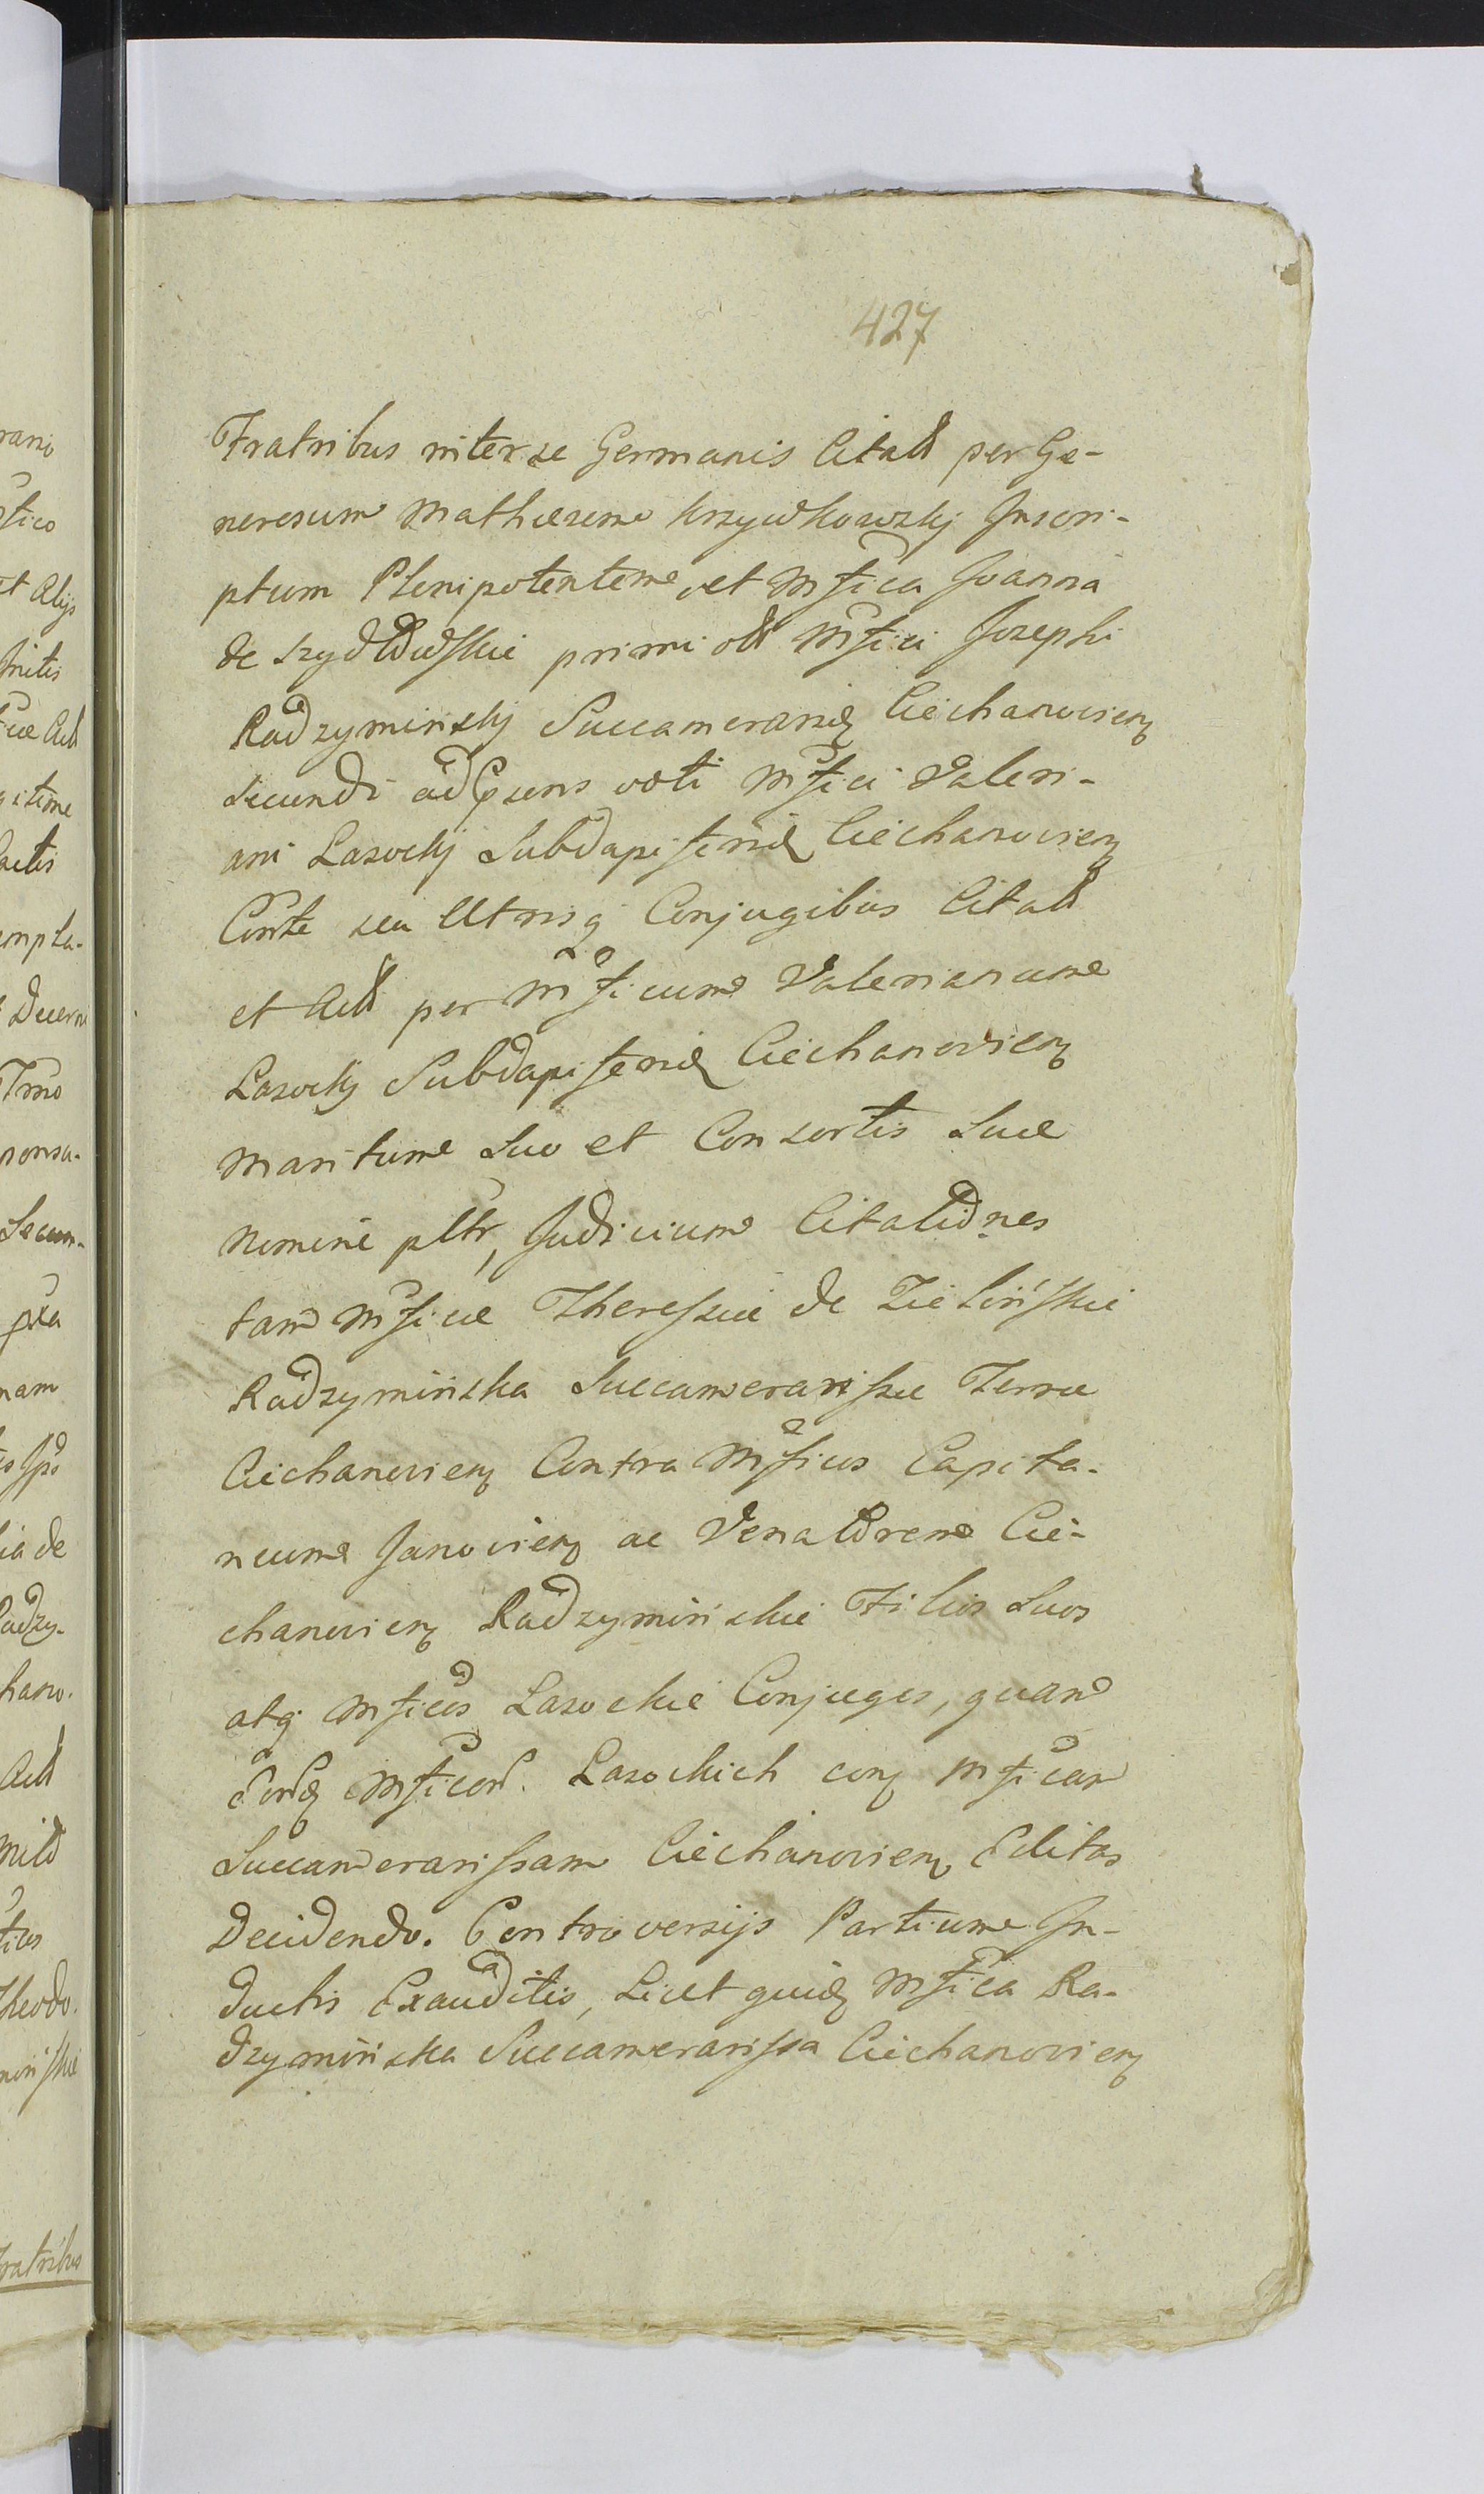 427
Fratribus inter se Germanis Citatt per Ge-
nerosum Mathiaeum Krzywkowskÿ Inscri-
ptum Plenipotentem et Mfica Joanna
de Szydłowskie primi olt Mfici Josephi
Radzyminskÿ Succamerarii Ciechanovien
Secundi ad psens voti Mfici Valeri-
ani Lasockÿ Subdapiferii Ciechanovien
Conte seu Utrisq Conjugibus Citatt
et Actt per Mficum Valerianum
Lasockÿ Subdapiferii Ciechanovien
Maritum Suo et Consortis Suae
nomine pltr, Judicium Citationes
tam Mficae Theressiae de Zielińskie
Radzymińska Succamerarissae Terrae
Ciechanovien Contra Mficos Capita-
neum Janovien ac Venatorem Cie-
chanovien Radzymińskie Filios Suos
atq Mficos Lasockie Conjuges, quam
Mficor. Lasockich con Mficam
Succamerarissam Ciechanovien Editas
Decidendo. Controversijs Partium In-
ductis Exauditis, Licet quid Mfica Ra-
dzymińska Succamerarissa Ciechanovien
rano
fico
et Alijs
Actt
itime
actis
empla-
Decerni
Tmo
Secun-
nam
ia de
Radzy-
hano.
Actt
Theodo.
Fratribus